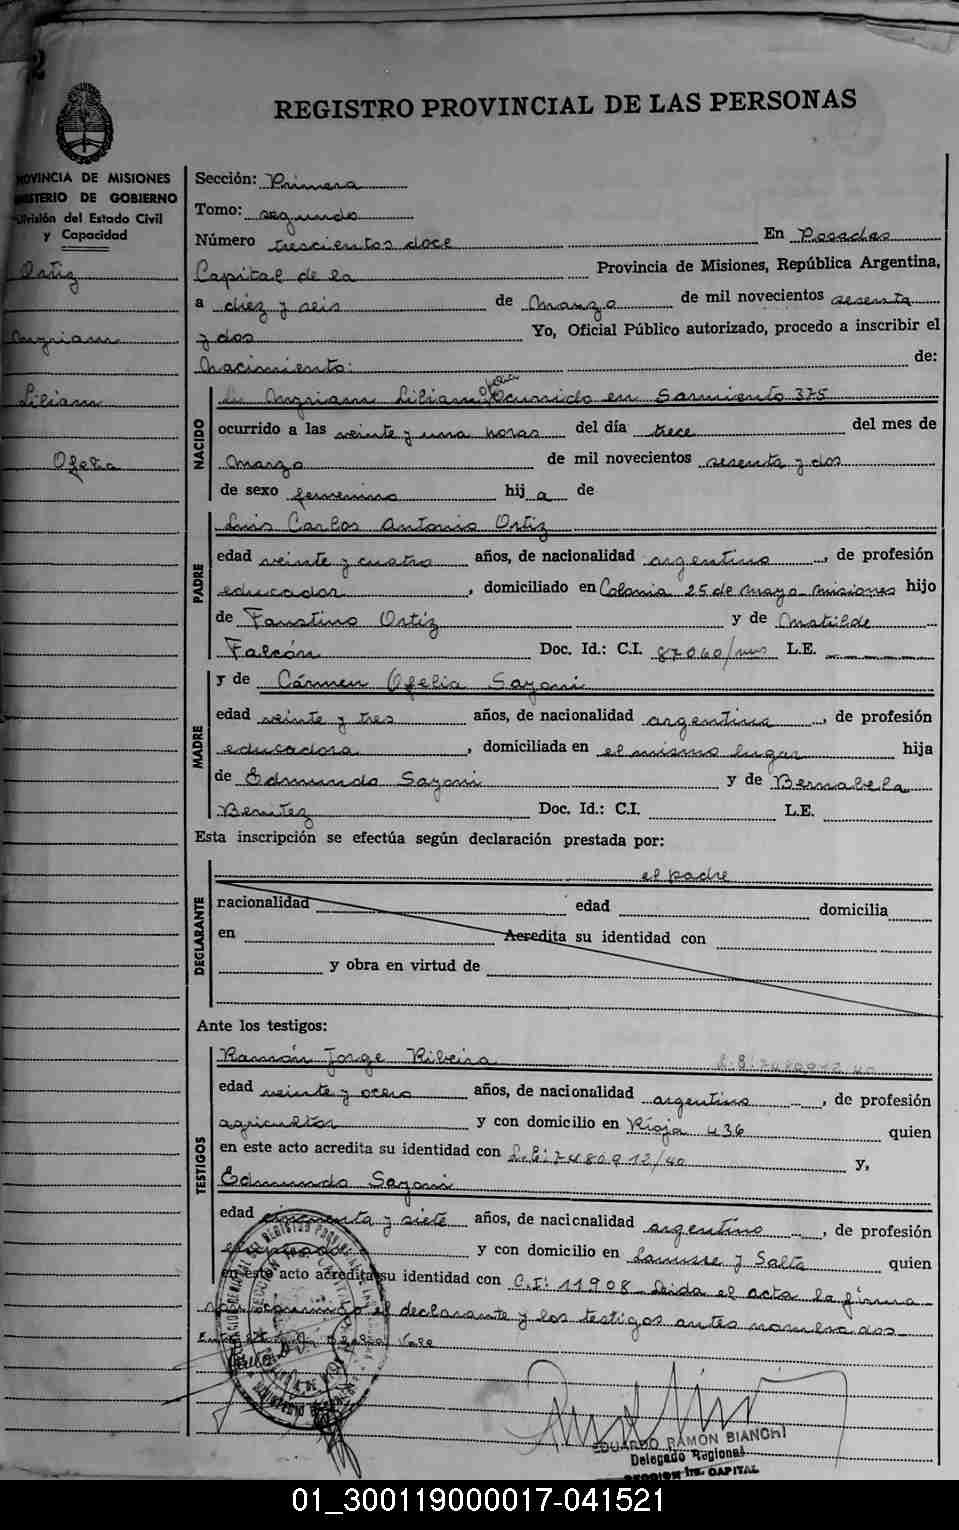 2
REGISTRO PROVINCIAL DE LAS PERSONAS
PROVINCIA DE MISIONES
MINISTERIO DE GOBIERNO
División del Estado Civil
y Capacidad
Ortiz
Myriam
Liliam
Ofelia
Sección: Primera
Tomo: segundo
Número trescientos doce En Posadas
Capital de la Provincia de Misiones, República Argentina,
a diez y seis de Marzo de mil novecientos sesenta
y dos Yo, Oficial Público autorizado, procedo a inscribir el
Nacimiento: de:
NACIDO
de Myriam Liliam Ofelia Ocurrido en Sarmiento 375
ocurrido a las veinte y una horas del día trece del mes de
Marzo de mil novecientos sesenta y dos
de sexo femenino hij a de
PADRE
Luis Carlos Antonio Ortiz
edad veinte y cuatro años, de nacionalidad argentino, de profesión
educador, domiciliado en Colonia 25 de Mayo Misiones hijo
de Faustino Ortiz y de Matilde
Falcón Doc. Id.: C.I. 87060/mns L.E.
MADRE
y de Cármen Ofelia Sayoni
edad veinte y tres años, de nacionalidad argentina, de profesión
educadora, domiciliada en el mismo lugar hija
de Edmundo Sayoni y de Bernabela
Benitez Doc. Id.: C.I. L.E.
Esta inscripción se efectúa según declaración prestada por:
DECLARANTE
el padre
nacionalidad edad domicilia
en Acredita su identidad con
y obra en virtud de
Ante los testigos:
TESTIGOS
Ramón Jorge Ribeira L.E. 7480912/40
edad veinte y ocho años, de nacionalidad argentino, de profesión
agricultor y con domicilio en Rioja 436 quien
en este acto acredita su identidad con L.E: 7480912/40 y,
Edmundo Sayoni
edad cincuenta y siete años, de nacionalidad argentino, de profesión
empleado y con domicilio en Lanusse y Salta quien
en este acto acredita su identidad con C.I: 11908 Leida el acta la firma
el declarante y los testigos antes nombrados
Ofelia Vale
EDUARDO RAMON BIANCHI
Delegado Regional
SECCION 1ra. CAPITAL
01_300119000017-041521